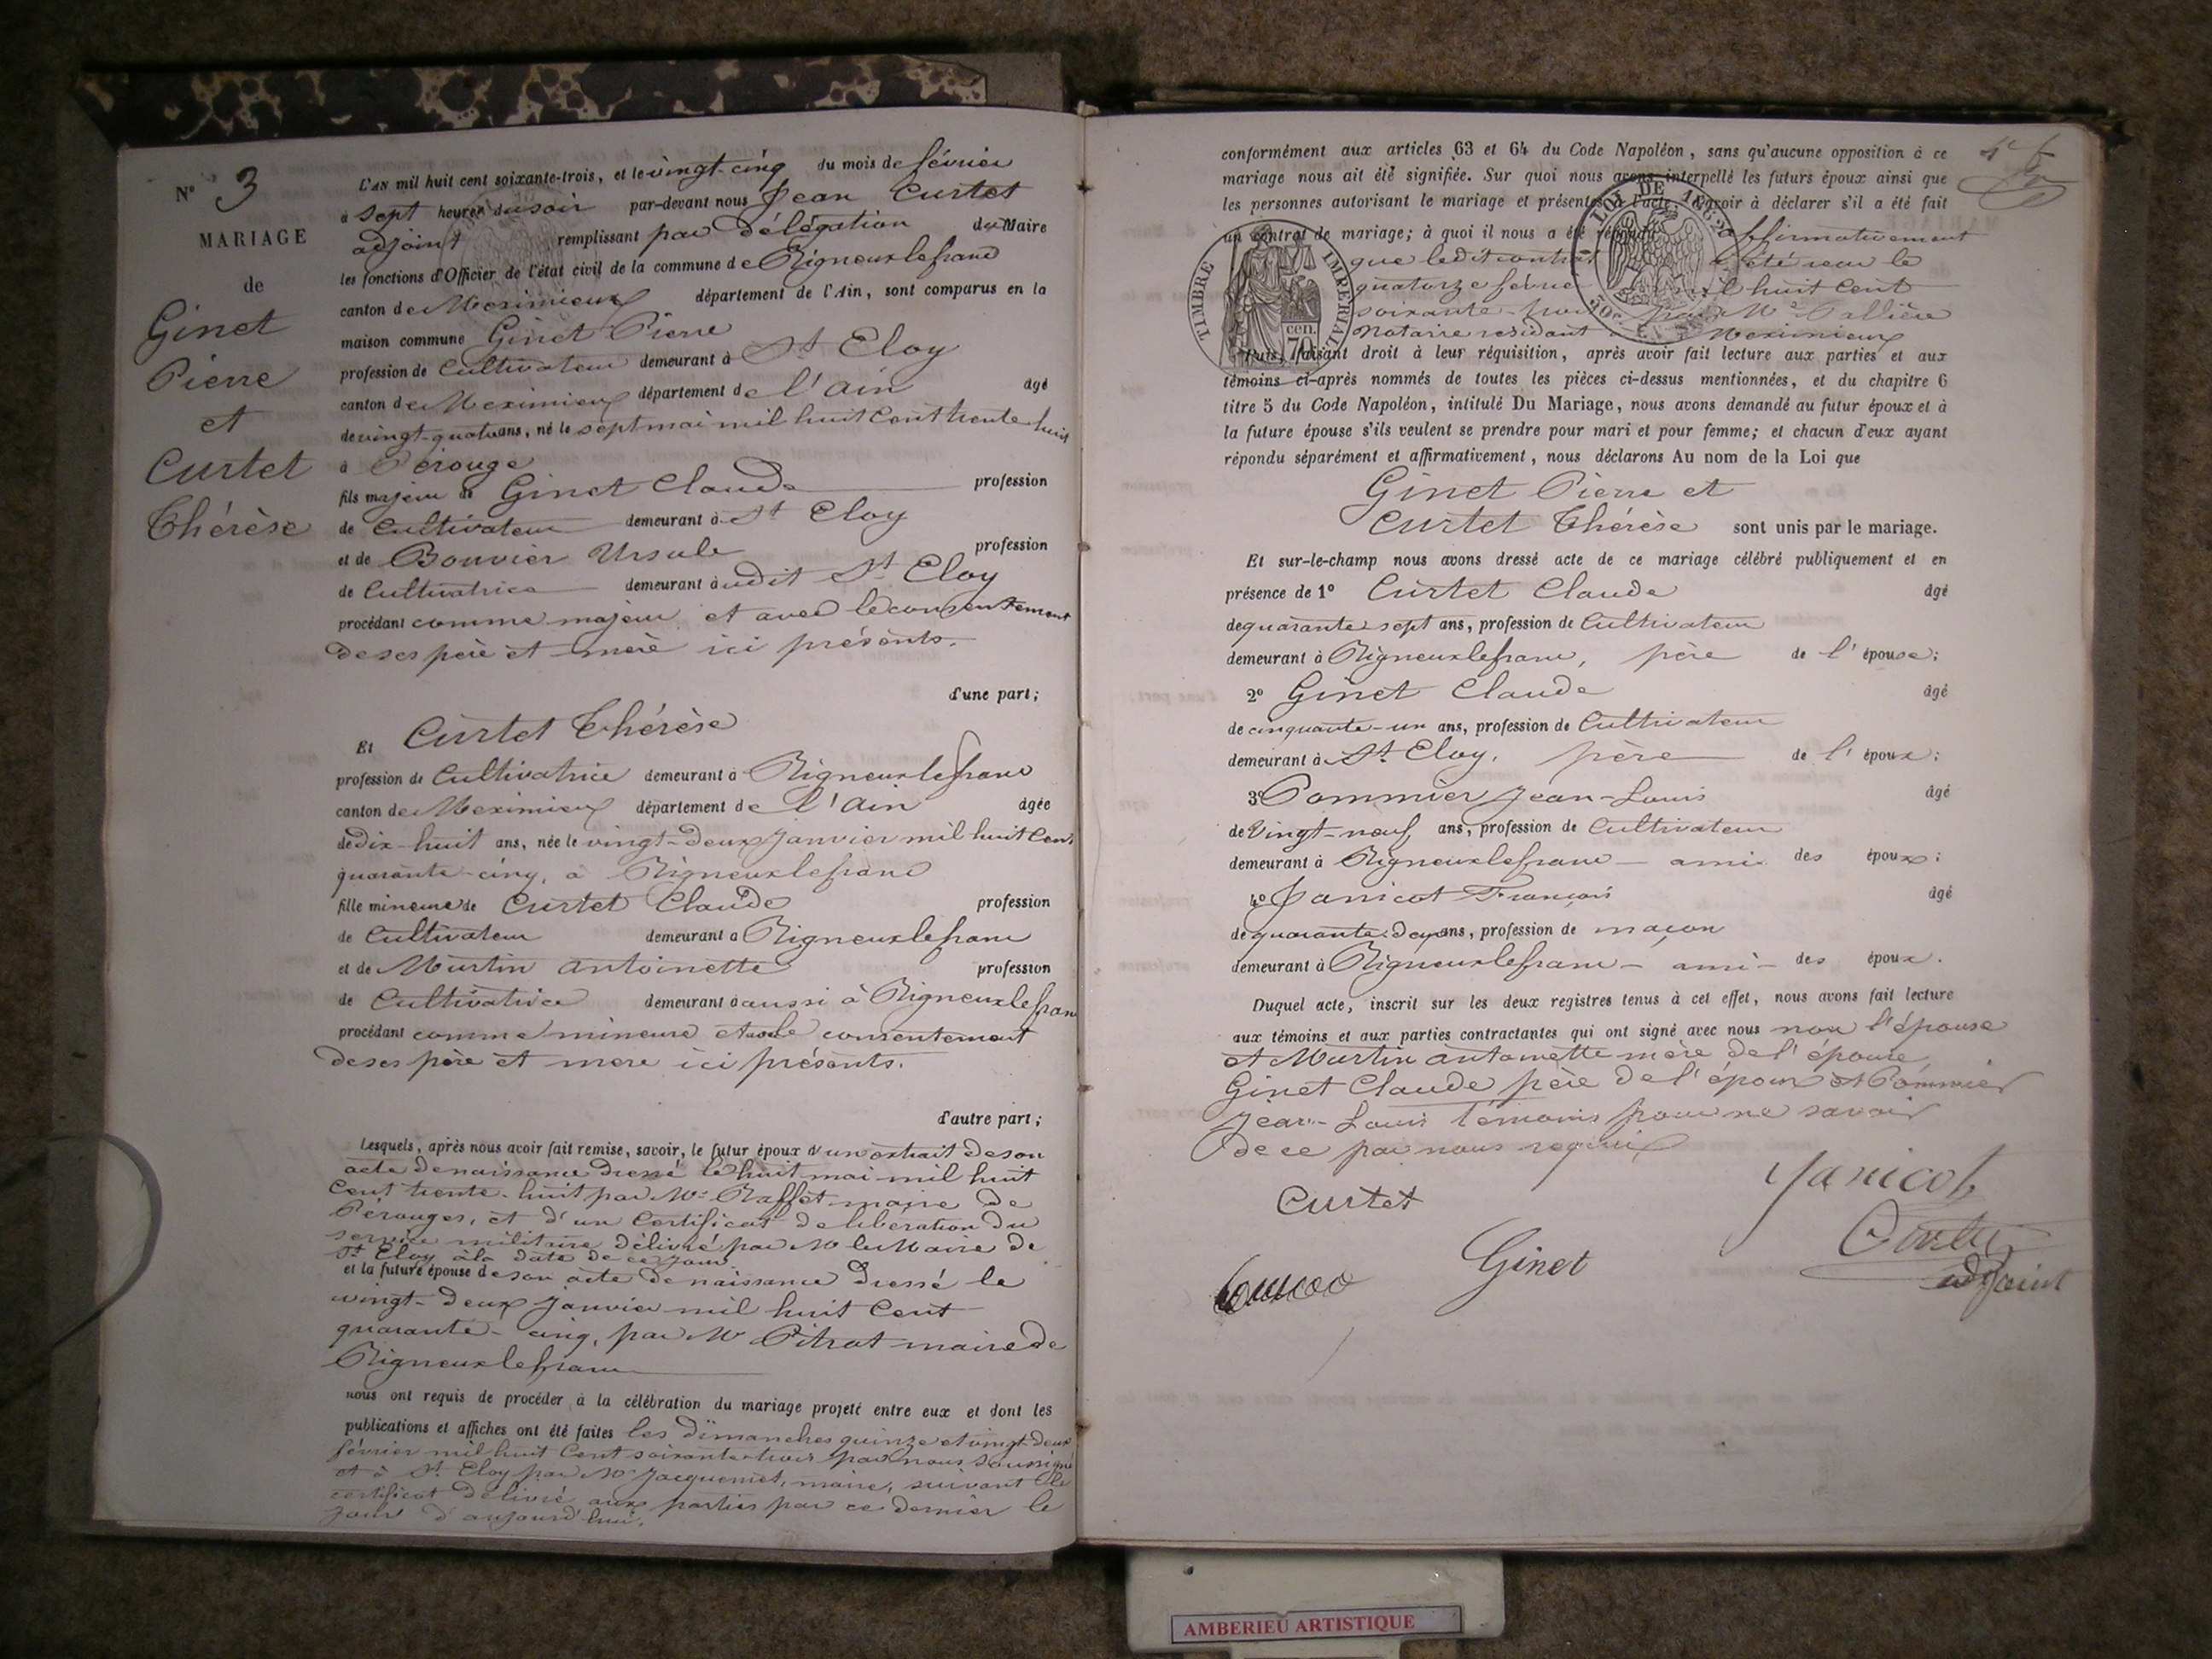 N° 3
MARIAGE
de
Ginet
Pierre
et
Curtet
Thérèse
L'AN mil huit cent soixante-trois, et le vingt-cinq du mois de février
à sept heures du soir par-devant nous Jean Curtet
adjoint remplissant par délégation du Maire
les fonctions d'Officier de l'état civil de la commune de Rigneuxlefranc
canton de Meximieux département de l'Ain, sont comparus en la
maison commune Ginet Pierre
profession de Cultivateur demeurant à St Eloy
canton de Meximieux département de l'ain âgé
de vingt-quatre ans, né le sept mai mil huit cent trente huit
à Pérouge
fils majeur de Ginet Claude profession
de Cultivateur demeurant à St Eloy
et de Bouvier Ursule profession
de Cultivatrice demeurant audit St Eloy
procédant comme majeur et avec le consentement
de ses père et mère ici présents.
d'une part;
Et Curtet Thérèse
profession de Cultivatrice demeurant à Rigneuxlefranc
canton de Meximieux département de l'ain âgée
de dix-huit ans, née le vingt-deux janvier mil huit cent
quarante-cinq, à Rigneuxlefranc
fille mineure de Curtet Claude profession
de Cultivateur demeurant à Rigneuxlefranc
et de Martin antoinette profession
de Cultivatrice demeurant à aussi à Rigneuxlefranc
procédant comme mineure et avec le consentement
de ses père et mere ici présents.
d'autre part;
Lesquels, après nous avoir fait remise, savoir, le futur époux d'un extrait de son
acte de naissance dressé le huit mai mil huit
cent trente-huit par Mr Raffet maire de
Pérouges, et d'un Certificat de libération du
service militaire délivré par Mr le Maire de
St Eloy à la date de ce jour
et la future épouse de son acte de naissance dressé le
vingt-deux janvier mil huit cent
quarante-cinq, par Mr Pitrat maire de
Rigneuxlefranc
nous ont requis de procéder à la célébration du mariage projeté entre eux et dont les
publications et affiches ont été faites les dimanches quinze et vingt-deux
février mil huit cent soixante-trois par nous soussigné
et à St Eloy par Mr Jacquemet, maire, suivant le
certificat délivré aux parties par ce dernier le
jour d'aujourd'hui.
conformément aux articles 63 et 64 du Code Napoléon, sans qu'aucune opposition à ce
mariage nous ait été signifiée. Sur quoi nous avons interpellé les futurs époux ainsi que
les personnes autorisant le mariage et présentes à l'acte, d'avoir à déclarer s'il a été fait
un contrat de mariage; à quoi il nous a été répondu affirmativement
que ledit contrat été reçu le
quatorze février huit cent
soixante-trois par Me Pallière
Notaire résidant Meximieux
TIMBRE IMPERIAL
70 cen.
LOI DE
Puis, faisant droit à leur réquisition, après avoir fait lecture aux parties et aux
témoins ci-après nommés de toutes les pièces ci-dessus mentionnées, et du chapitre 6
titre 5 du Code Napoléon, intitulé Du Mariage, nous avons demandé au futur époux et à
la future épouse s'ils veulent se prendre pour mari et pour femme; et chacun d'eux ayant
répondu séparément et affirmativement, nous déclarons Au nom de la Loi que
Ginet Pierre et
Curtet Thérèse sont unis par le mariage.
Et sur-le-champ nous avons dressé acte de ce mariage célébré publiquement et en
présence de 1° Curtet Claude âgé
de quarante sept ans, profession de Cultivateur
demeurant à Rigneuxlefranc, père de l'épouse;
2° Ginet Claude âgé
de cinquante-un ans, profession de Cultivateur
demeurant à St Eloy, père de l'époux;
3° Pommier Jean-Louis âgé
de Vingt-neuf ans, profession de Cultivateur
demeurant à Rigneuxlefranc - ami des époux;
4° Janicot François âgé
de quarante-deux ans, profession de maçon
demeurant à Rigneuxlefranc - ami - des époux.
Duquel acte, inscrit sur les deux registres tenus à cet effet, nous avons fait lecture
aux témoins et aux parties contractantes qui ont signé avec nous non l'épouse
et Martin antoinette mère de l'épouse
Ginet Claude père de l'époux et Pommier
Jean-Louis témoins pour ne savoir
de ce par nous requis
Janicot
Curtet
Ginet
Curtet
adjoint
AMBERIEU ARTISTIQUE